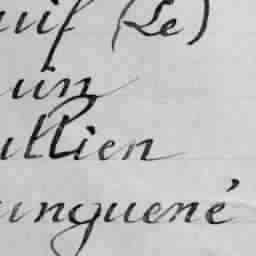 uif (Le)
uin
ullien
unguené